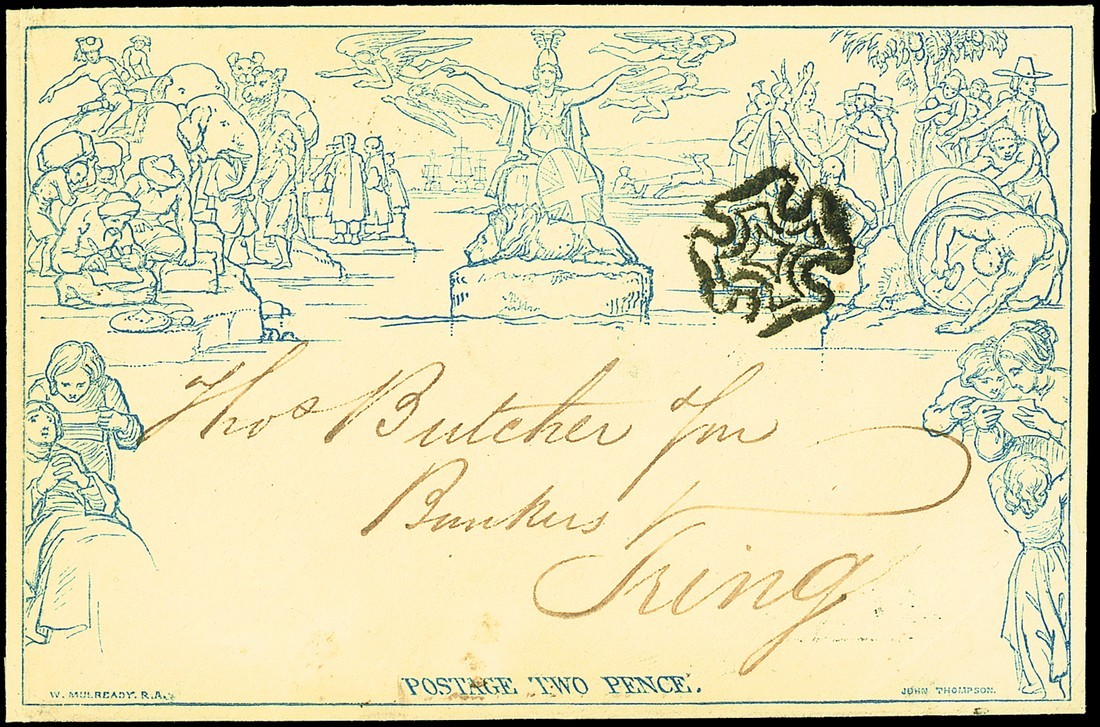 Thos Butcher Jnr
Bankers
Tring
POSTAGE TWO PENCE.
W. MULREADY. R.A.
JOHN THOMPSON.